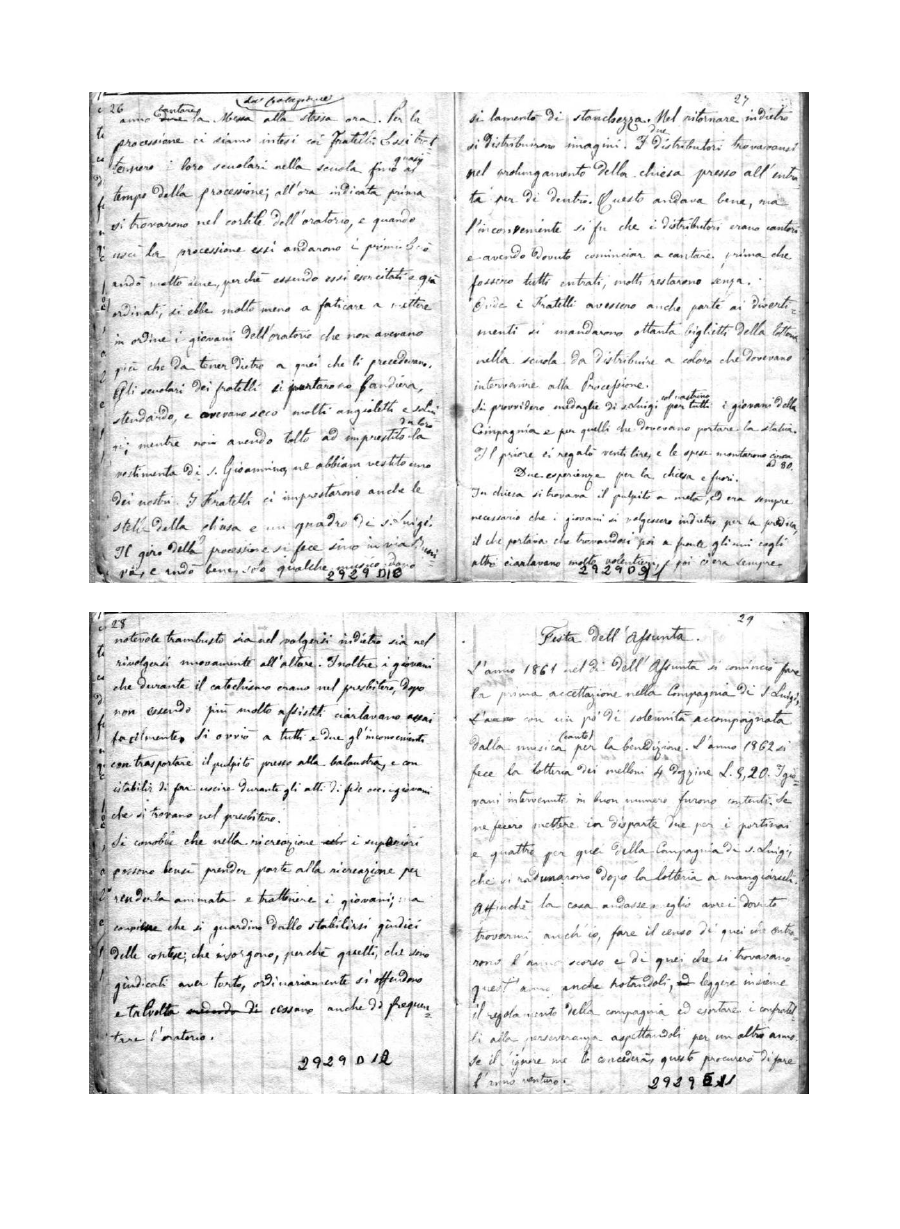 26
anno cantare la Messa alla stessa ora. Per la
processione ci siamo intesi coi Fratelli. Essi trat
tennero i loro scuolari nella scuola fino a quasi
tempo della processione; all'ora indicata prima
si trovarono nel cortile dell'oratorio, e quando
uscì la processione essi andarono i primi. Ciò
andò molto bene, perchè essendo essi esercitati e già
ordinati, si ebbe molto meno a faticare a mettere
in ordine i giovani dell'oratorio che non avevano
più che da tener dietro a quei che li precedevano.
Gli scuolari dei fratelli si portarono bandiera,
stendardo, e avevano seco molti angioletti e s. Lui
gi; mentre noi avendo tolto ad imprestito da loro la
vestimenta di s. Gioannino, ne abbiam vestito uno
dei nostri. I Fratelli ci imprestarono anche le
stelle della chiesa e un quadro di s. Luigi.
Il giro della processione si fece sino in via
e andò bene, solo qualche musico dano
2929 D10
27
si lamentò di stanchezza. Nel ritornare indietro
si distribuirono imagini. I due distributori trovavansi
nel prolungamento della chiesa presso all'entra
ta per di dentro. Questo andava bene, ma
l'inconveniente si fu che i distributori erano cantori
e avendo dovuto cominciar a cantare, prima che
fossero tutti entrati, molti restarono senza.
Onde i Fratelli avessero anche parte ai diverti=
menti si mandarono ottanta biglietti della lotteria
nella scuola da distribuire a coloro che dovevano
intervenire alla Processione.
Si provvidero medaglie di s. Luigi col nastrino per tutti i giovani della
Compagnia e per quelli che dovevano portare la statua.
Il priore ci regalò venti lire, e le spese montarono circa
ad 80.
Due esperienze per la chiesa e fuori.
In chiesa si trovava il pulpito a metà, ed era sempre
necessario che i giovani si volgessero indietro per la predica
il che portava che trovandosi poi a fronte gli uni cogli
altri ciarlavano molto volentieri, e poi c'era sempre
2929 D11
28
notevole trambusto sia nel volgersi indietro sia nel
rivolgersi nuovamente all'altare. Inoltre i giovani
che durante il catechismo erano nel presbitero, dopo
non essendo più molto assistiti ciarlavano assai
facilmente. Si ovviò a tutti e due gl'inconvenienti
con trasportare il pulpito presso alla balaustra, e con
istabilir di far uscire durante gli atti di fede ecc. i giovani
che si trovano nel presbitero.
Si conobbe che nella ricreazione i superiori
possono bensì prender parte alla ricreazione per
renderla animata e trattenere i giovani; ma
conviene che si guardino dallo stabilirsi giudici
delle contese, che insorgono, perchè quelli, che son
giudicati aver torto, ordinariamente si offendono
e talvolta cessano anche da frequen=
tare l'oratorio.
2929 D12
29
Festa dell'Assunta.
L'anno 1861 nel dì dell'Assunta si cominciò fare
la prima accettazione nella Compagnia di S. Luigi,
con un pò di solennità accompagnata
dalla musica (canto) per la benedizione. L'anno 1862 si
fece la lotteria dei melloni 4 dozzine L. 8,20. I gio=
vani intervenuti in buon numero furono contenti. Se
ne fecero mettere in disparte due per i portinai
e quattro per quei della Compagnia di s. Luigi,
che si radunarono dopo la lotteria a mangiarseli.
Affinchè la cosa andasse meglio avrei dovuto
trovarmi anch'io, fare il censo di quei che entra
rono l'anno scorso e di quei che si trovavano
quest'anno anche notandoli, leggere insieme
il regolamento della compagnia ed esortare i confratel
li alla perseveranza aspettandoli per un altro anno.
Se il Signore me lo concederà, questo procurerò di fare
l'anno venturo.
2929 E1